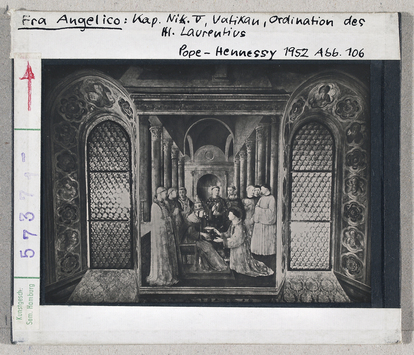 Fra Angelico: Kap. Nik. V, Vatikan, Ordination des
Hl. Laurentius
Pope-Hennessy 1952 Abb. 106
Kunstgesch.
Sem. Hamburg